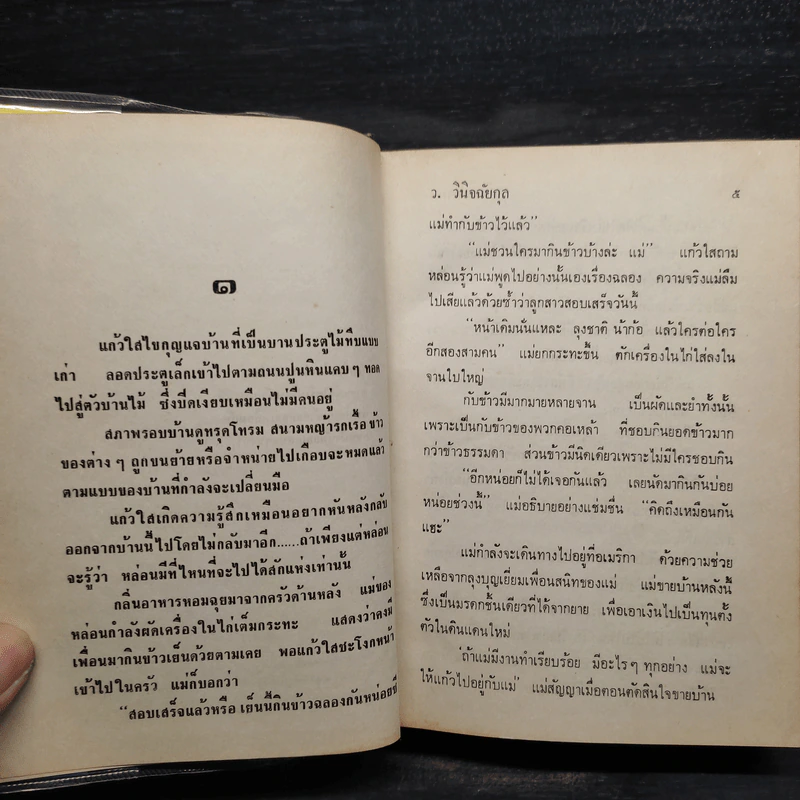 ๑
แก้วใสไขกุญแจบ้านที่เป็นบานประตูไม้ทึบแบบ
เก่า ลอดประตูเล็กเข้าไปตามถนนปูนหินแคบ ๆ ทอด
ไปสู่ตัวบ้านไม้ ซึ่งปิดเงียบเหมือนไม่มีคนอยู่
สภาพรอบบ้านดูทรุดโทรม สนามหญ้ารกเรื้อ ข้าว
ของต่าง ๆ ถูกขนย้ายหรือจำหน่ายไปเกือบจะหมดแล้ว
ตามแบบของบ้านที่กำลังจะเปลี่ยนมือ
แก้วใสเกิดความรู้สึกเหมือนอยากหันหลังกลับ
ออกจากบ้านนี้ไปโดยไม่กลับมาอีก......ถ้าเพียงแต่หล่อน
จะรู้ว่า หล่อนมีที่ไหนที่จะไปได้สักแห่งเท่านั้น
กลิ่นอาหารหอมฉุยมาจากครัวด้านหลัง แม่ของ
หล่อนกำลังผัดเครื่องในไก่เต็มกระทะ แสดงว่าคงมี
เพื่อนมากินข้าวเย็นด้วยตามเคย พอแก้วใสชะโงกหน้า
เข้าไปในครัว แม่ก็บอกว่า
“สอบเสร็จแล้วหรือ เย็นนี้กินข้าวฉลองกันหน่อยซี
ว. วินิจฉัยกุล ๕
แม่ทำกับข้าวไว้แล้ว”
“แม่ชวนใครมากินข้าวบ้างล่ะ แม่” แก้วใสถาม
หล่อนรู้ว่าแม่พูดไปอย่างนั้นเองเรื่องฉลอง ความจริงแม่ลืม
ไปเสียแล้วด้วยซ้ำว่าลูกสาวสอบเสร็จวันนี้
“หน้าเดิมนั่นแหละ ลุงชาติ น้าก้อ แล้วใครต่อใคร
อีกสองสามคน” แม่ยกกระทะขึ้น ตักเครื่องในไก่ใส่ลงใน
จานใบใหญ่
กับข้าวมีมากมายหลายจาน เป็นผัดและยำทั้งนั้น
เพราะเป็นกับข้าวของพวกคอเหล้า ที่ชอบกินยอดข้าวมาก
กว่าข้าวธรรมดา ส่วนข้าวมีนิดเดียวเพราะไม่มีใครชอบกิน
“อีกหน่อยก็ไม่ได้เจอกันแล้ว เลยนัดมากินกันบ่อย
หน่อยช่วงนี้” แม่อธิบายอย่างแช่มชื่น “คิดถึงเหมือนกัน
แฮะ”
แม่กำลังจะเดินทางไปอยู่ที่อเมริกา ด้วยความช่วย
เหลือจากลุงบุญเยี่ยมเพื่อนสนิทของแม่ แม่ขายบ้านหลังนี้
ซึ่งเป็นมรดกชิ้นเดียวที่ได้จากยาย เพื่อเอาเงินไปเป็นทุนตั้ง
ตัวในดินแดนใหม่
‘ถ้าแม่มีงานทำเรียบร้อย มีอะไร ๆ ทุกอย่าง แม่จะ
ให้แก้วไปอยู่กับแม่’ แม่สัญญาเมื่อตอนตัดสินใจขายบ้าน